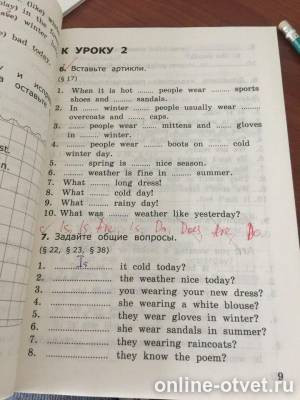 play) in the
(like)
winter
bad today.
К УРОКУ 2
6. Вставьте артикли.
(§ 17)
1. When it is hot ...... people wear ...... sports
shoes and ...... sandals.
2. In ...... winter ...... people usually wear ......
overcoats and ...... caps.
3. ...... people wear ...... mittens and ...... gloves
in ...... winter.
4. ...... people wear ...... boots on ...... cold
winter day.
5. ...... spring is ...... nice season.
6. ...... weather is fine in ...... summer.
7. What ...... long dress!
8. What ...... cold day!
9. What ...... rainy day!
10. What was ...... weather like yesterday?
Is, Is, Are, Is, Do, Does, Are, Do
7. Задайте общие вопросы.
(§ 22, § 23, § 38)
1. Is it cold today?
2. ...... the weather nice today?
3. ...... you wearing your new dress?
4. ...... she wearing a white blouse?
5. ...... they wear gloves in winter?
6. ...... she wear sandals in summer?
7. ...... they wearing raincoats?
8. ...... they know the poem?
9
online-otvet.ru